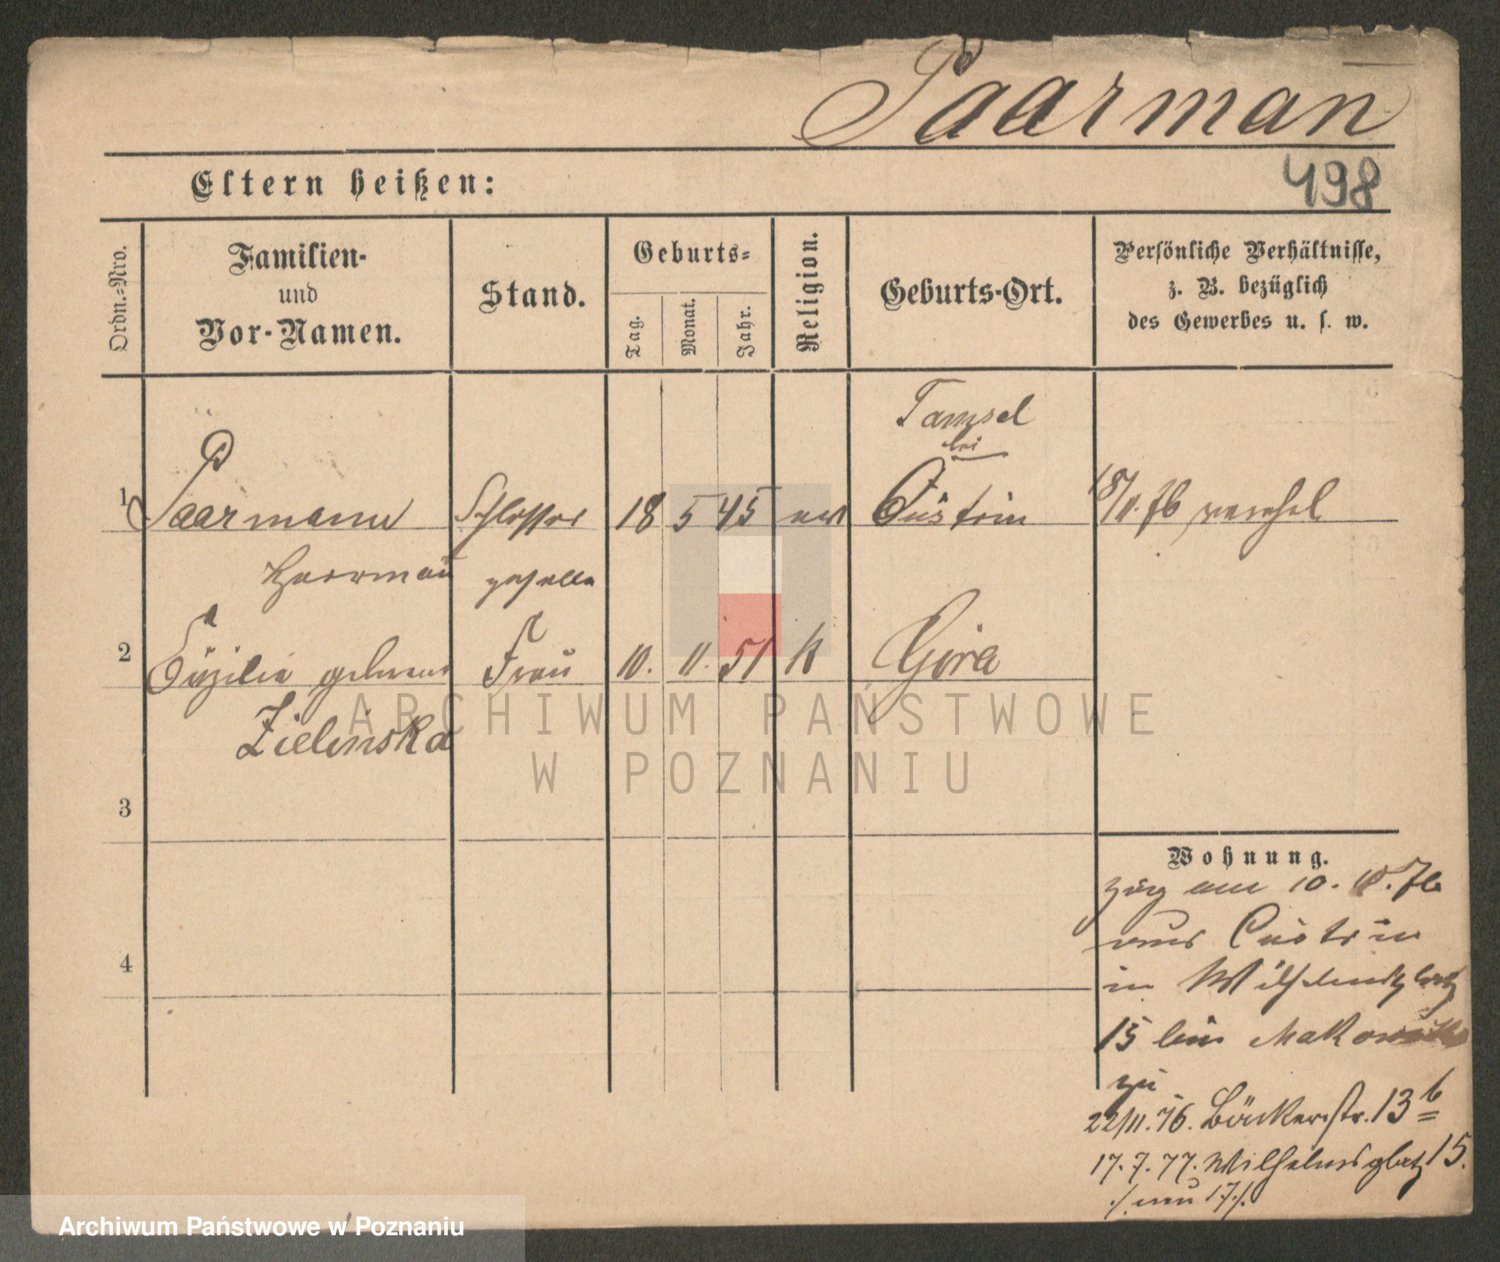 Paarman
498
Eltern heißen:
Ordn.-Nro.
Familien-
und
Vor-Namen.
Stand.
Geburts-
Tag.
Monat.
Jahr.
Religion.
Geburts-Ort.
Persönliche Verhältnisse,
z. B. bezüglich
des Gewerbes u. s. w.
Tamsel
bei
1 Paarmann Schlosser 18 5 45 ev Cüstrin 18/11.76
Herrman geselle
2 Cäzilie geborne Frau 10. 11. 51 k Góra
Zielinska
ARCHIWUM PAŃSTWOWE
W POZNANIU
3
4
Wohnung.
zug am 10. 10. 76
aus Cüstrin
in Wilhelmsplatz
15 bei
zu
22/11.76. Bäckerstr. 13 b
17.7.77. Wilhelmsplatz 15.
./. neu 17 ./.
Archiwum Państwowe w Poznaniu